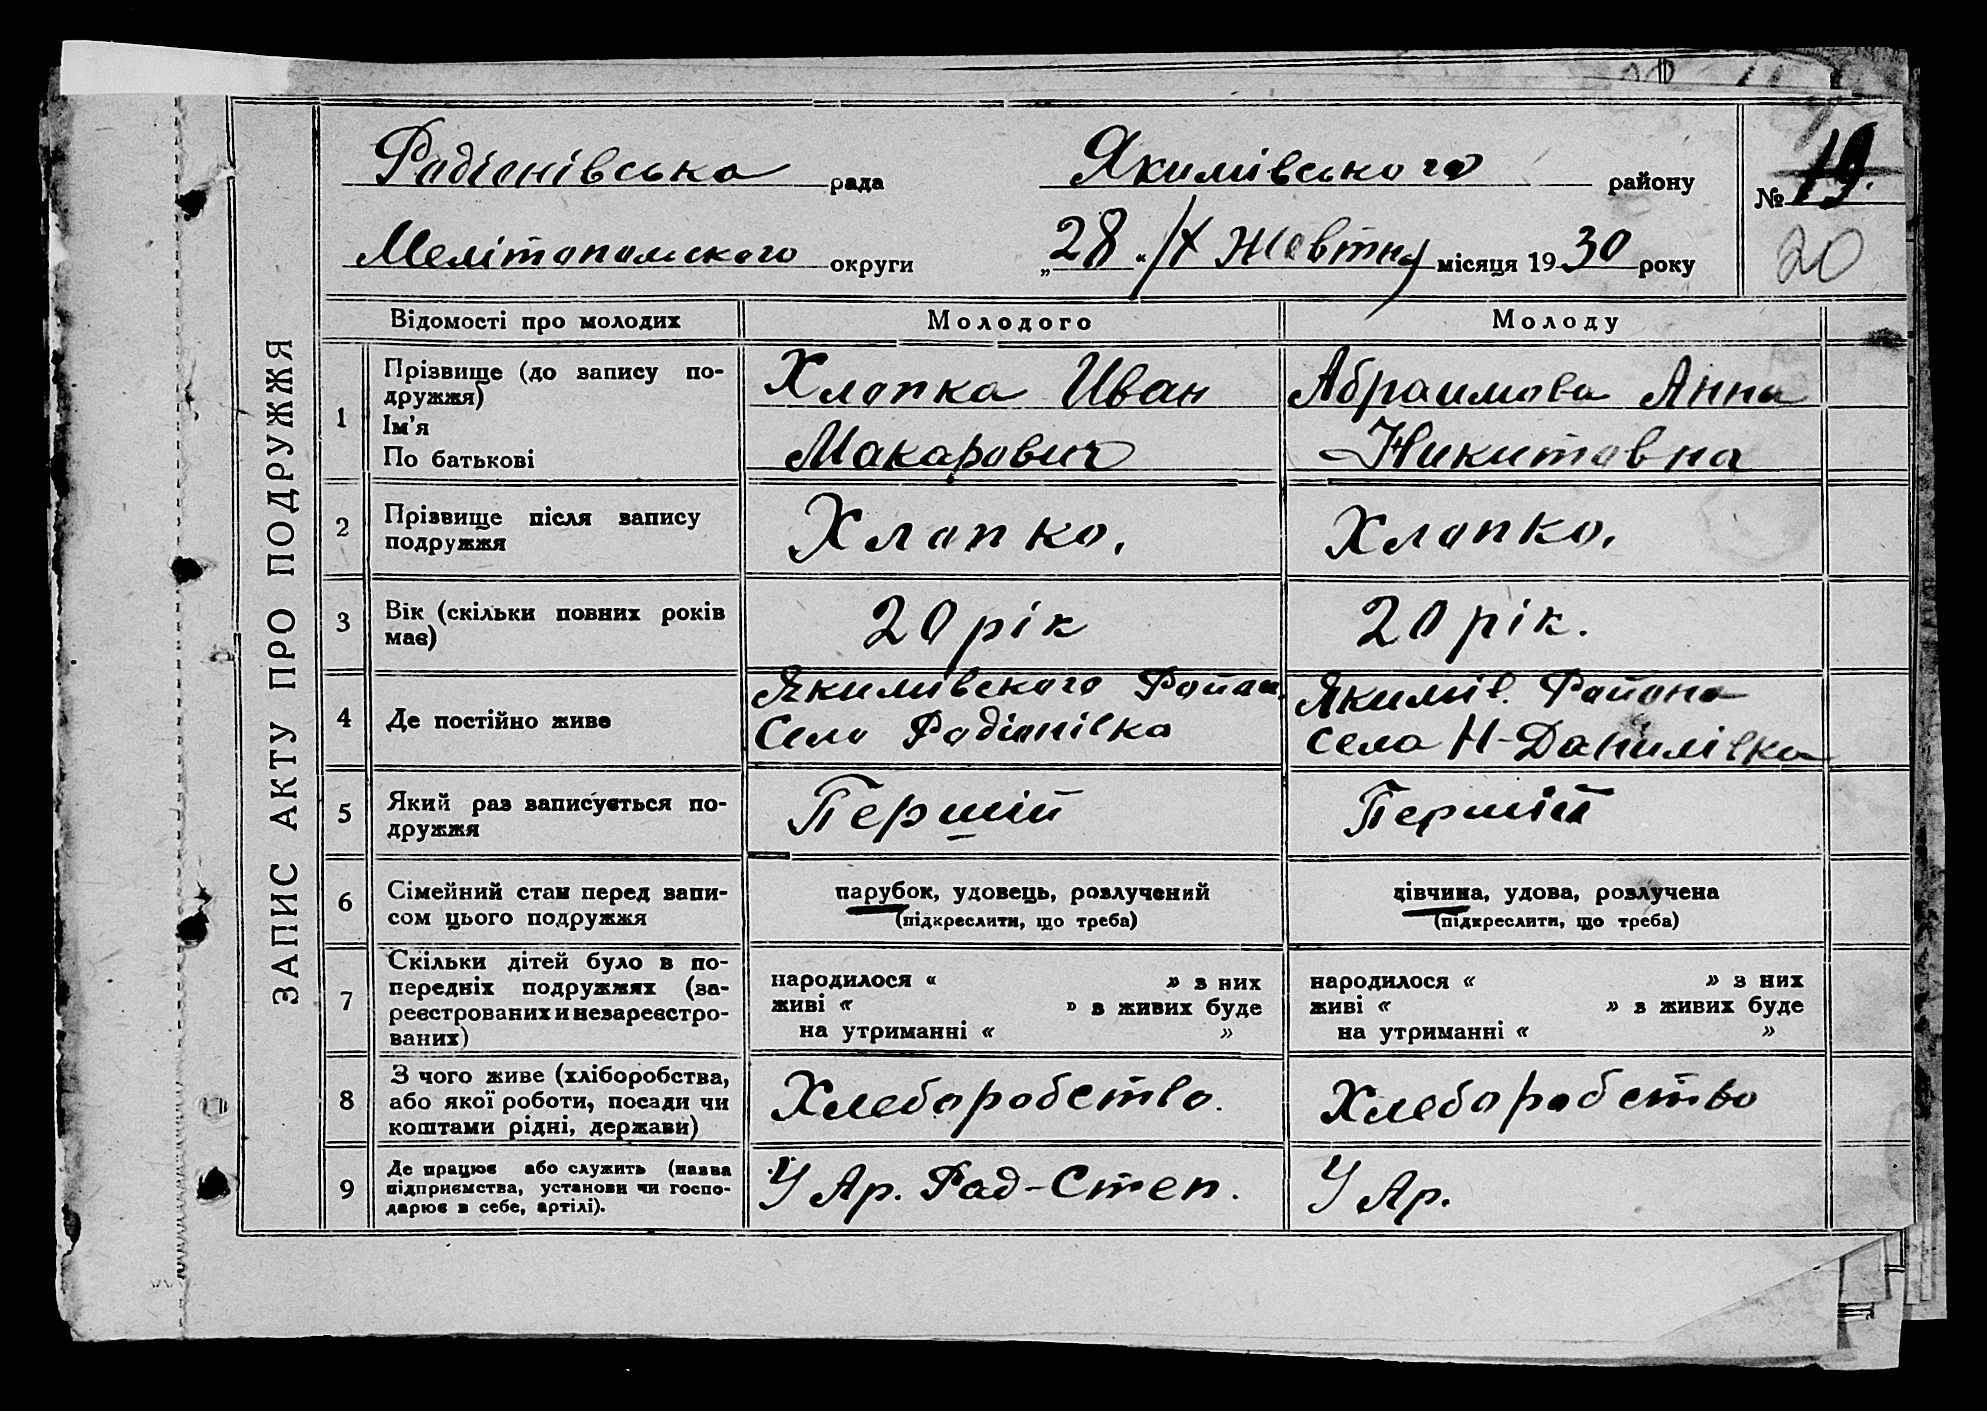 ЗАПИС АКТУ ПРО ПОДРУЖЖЯ
Радіонівська рада Якимівського району
№ 19.
Мелітопольского округи „28“ /X Жовтня місяця 1930 року
20
Відомості про молодих Молодого Молоду
1 Прізвище (до запису по-
дружжя)
Ім’я
По батькові
Хлопко Иван
Макарович
Абраимова Анна
Никитовна
2 Прізвище після запису
подружжя
Хлопко.
Хлопко.
3 Вік (скільки повних років
має)
20 рік
20 рік.
4 Де постійно живе
Якимівского Район.
Село Радіонівка
Якимів. Района
села Н-Данилівка
5 Який раз записується по-
дружжя
Першій
Першій
6 Сімейний стан перед запи-
сом цього подружжя
парубок, удовець, розлучений
(підкреслити, що треба)
дівчина, удова, розлучена
(підкреслити, що треба)
7 Скільки дітей було в по-
передніх подружжях (за-
реєстрованих и незареєстро-
ваних)
народилося « » з них
живі « » в живих буде
на утриманні « »
народилося « » з них
живі « » в живих буде
на утриманні « »
8 З чого живе (хліборобства,
або якої роботи, посади чи
коштами рідні, держави)
Хлеборобство.
Хлеборобство
9 Де працює або служить (назва
підприємства, установи чи госпо-
дарює в себе, артілі).
У Ар. Рад-Степ.
У Ар.